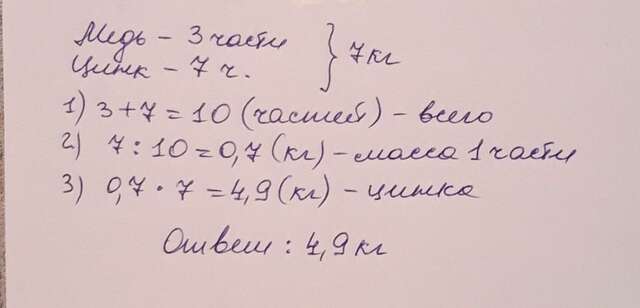 Медь – 3 части } 7 кг
Цинк – 7 ч.
1) 3+7=10 (частей) – всего
2) 7:10=0,7 (кг) – масса 1 части
3) 0,7·7=4,9 (кг) – цинка
Ответ: 4,9 кг